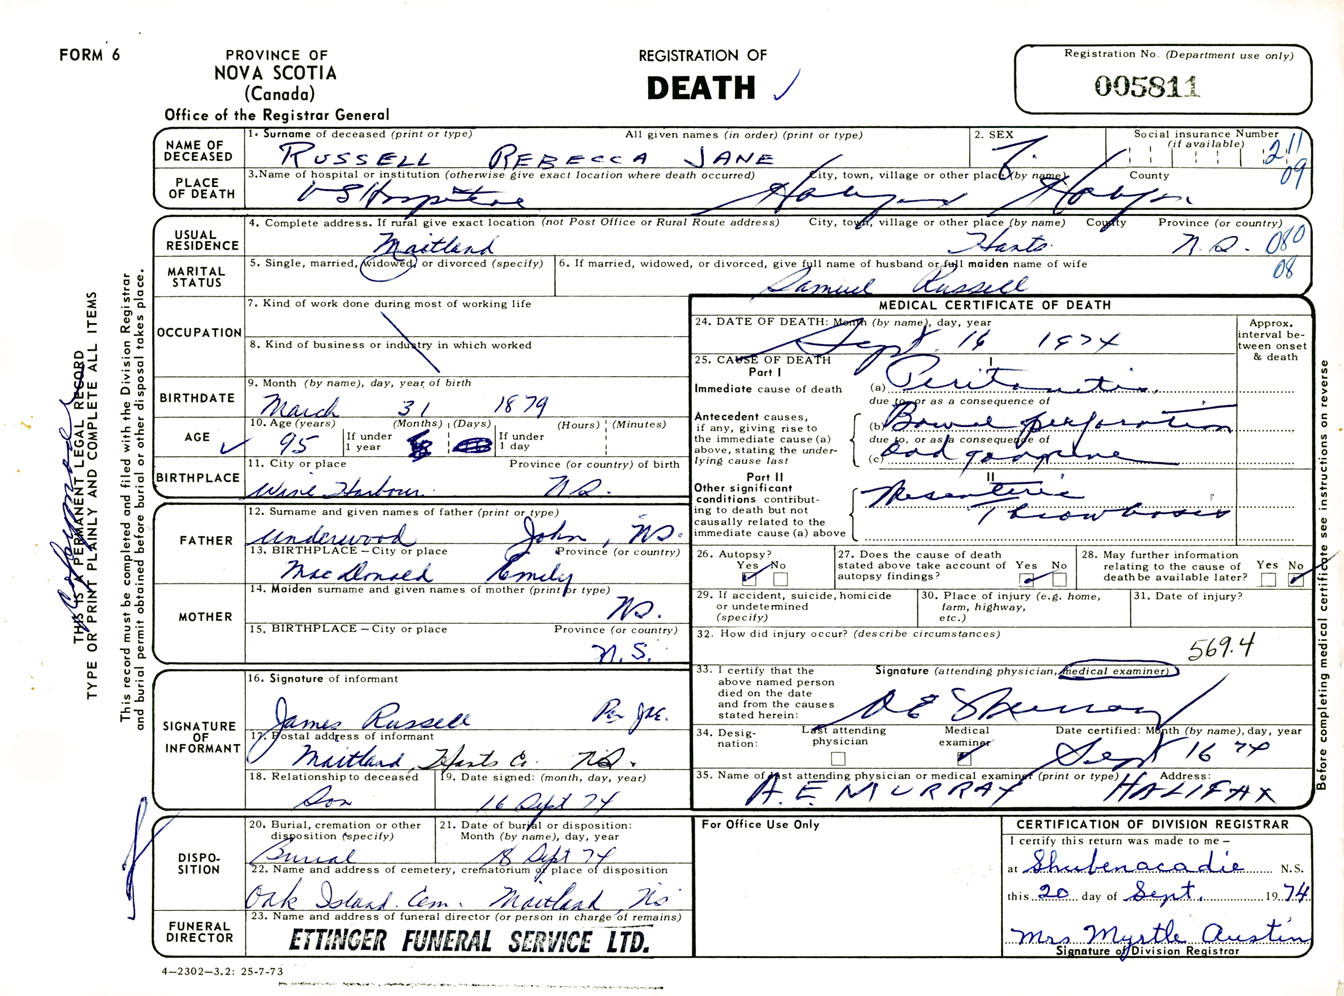 FORM 6
PROVINCE OF
NOVA SCOTIA
(Canada)
Office of the Registrar General
REGISTRATION OF
DEATH
Registration No. (Department use only)
005811
NAME OF DECEASED
1. Surname of deceased (print or type) All given names (in order) (print or type)
RUSSELL REBECCA JANE
2. SEX
F.
Social insurance Number
(if available)
211
09
PLACE OF DEATH
3. Name of hospital or institution (otherwise give exact location where death occurred) City, town, village or other place (by name) County
VG Hospital Halifax Halifax
USUAL RESIDENCE
4. Complete address. If rural give exact location (not Post Office or Rural Route address) City, town, village or other place (by name) County Province (or country)
Maitland Hants. N.S. 080
08
MARITAL STATUS
5. Single, married, widowed, or divorced (specify)
6. If married, widowed, or divorced, give full name of husband or full maiden name of wife
Samuel Russell
OCCUPATION
7. Kind of work done during most of working life
8. Kind of business or industry in which worked
BIRTHDATE
9. Month (by name), day, year of birth
March 31 1879
AGE
10. Age (years) (Months) (Days) (Hours) (Minutes)
95 If under 1 year If under 1 day
BIRTHPLACE
11. City or place Province (or country) of birth
Wine Harbour. N.S.
FATHER
12. Surname and given names of father (print or type)
Underwood John, NS.
13. BIRTHPLACE – City or place Province (or country)
MacDonald Emily
MOTHER
14. Maiden surname and given names of mother (print or type)
NS.
15. BIRTHPLACE – City or place Province (or country)
N.S.
SIGNATURE OF INFORMANT
16. Signature of informant
James Russell Per
17. Postal address of informant
Maitland, Hants Co. N.S.
18. Relationship to deceased
Son
19. Date signed: (month, day, year)
16 Sept 74
DISPO-
SITION
20. Burial, cremation or other disposition (specify)
Burial
21. Date of burial or disposition:
Month (by name), day, year
18 Sept 74
22. Name and address of cemetery, crematorium or place of disposition
Oak Island. Cem. Maitland, NS
FUNERAL DIRECTOR
23. Name and address of funeral director (or person in charge of remains)
ETTINGER FUNERAL SERVICE LTD.
4–2302–3.2: 25-7-73
MEDICAL CERTIFICATE OF DEATH
24. DATE OF DEATH: Month (by name), day, year
Sept. 16 1974
Approx. interval between onset & death
25. CAUSE OF DEATH
Part I
I
Immediate cause of death
(a) Peritonitis.
due to, or as a consequence of
Antecedent causes, if any, giving rise to the immediate cause (a) above, stating the underlying cause last
(b) Bowel perforation
due to, or as a consequence of
(c) and gangrene
Part II
II
Other significant conditions contributing to death but not causally related to the immediate cause (a) above
Mesenteric
Thrombosis
26. Autopsy?
Yes No
27. Does the cause of death stated above take account of autopsy findings? Yes No
28. May further information relating to the cause of death be available later? Yes No
29. If accident, suicide, homicide or undetermined (specify)
30. Place of injury (e.g. home, farm, highway, etc.)
31. Date of injury?
32. How did injury occur? (describe circumstances)
569.4
33. I certify that the above named person died on the date and from the causes stated herein:
Signature (attending physician, medical examiner)
A E Murray
34. Designation:
Last attending physician
Medical examiner
Date certified: Month (by name), day, year
Sept 16 74
35. Name of last attending physician or medical examiner (print or type) Address:
A.E. MURRAY HALIFAX
For Office Use Only
CERTIFICATION OF DIVISION REGISTRAR
I certify this return was made to me –
at Shubenacadie N.S.
this 20 day of Sept. 1974
Mrs Myrtle Austin
Signature of Division Registrar
THIS IS A PERMANENT LEGAL RECORD
TYPE OR PRINT PLAINLY AND COMPLETE ALL ITEMS
This record must be completed and filed with the Division Registrar
and burial permit obtained before burial or other disposal takes place.
Before completing medical certificate see instructions on reverse